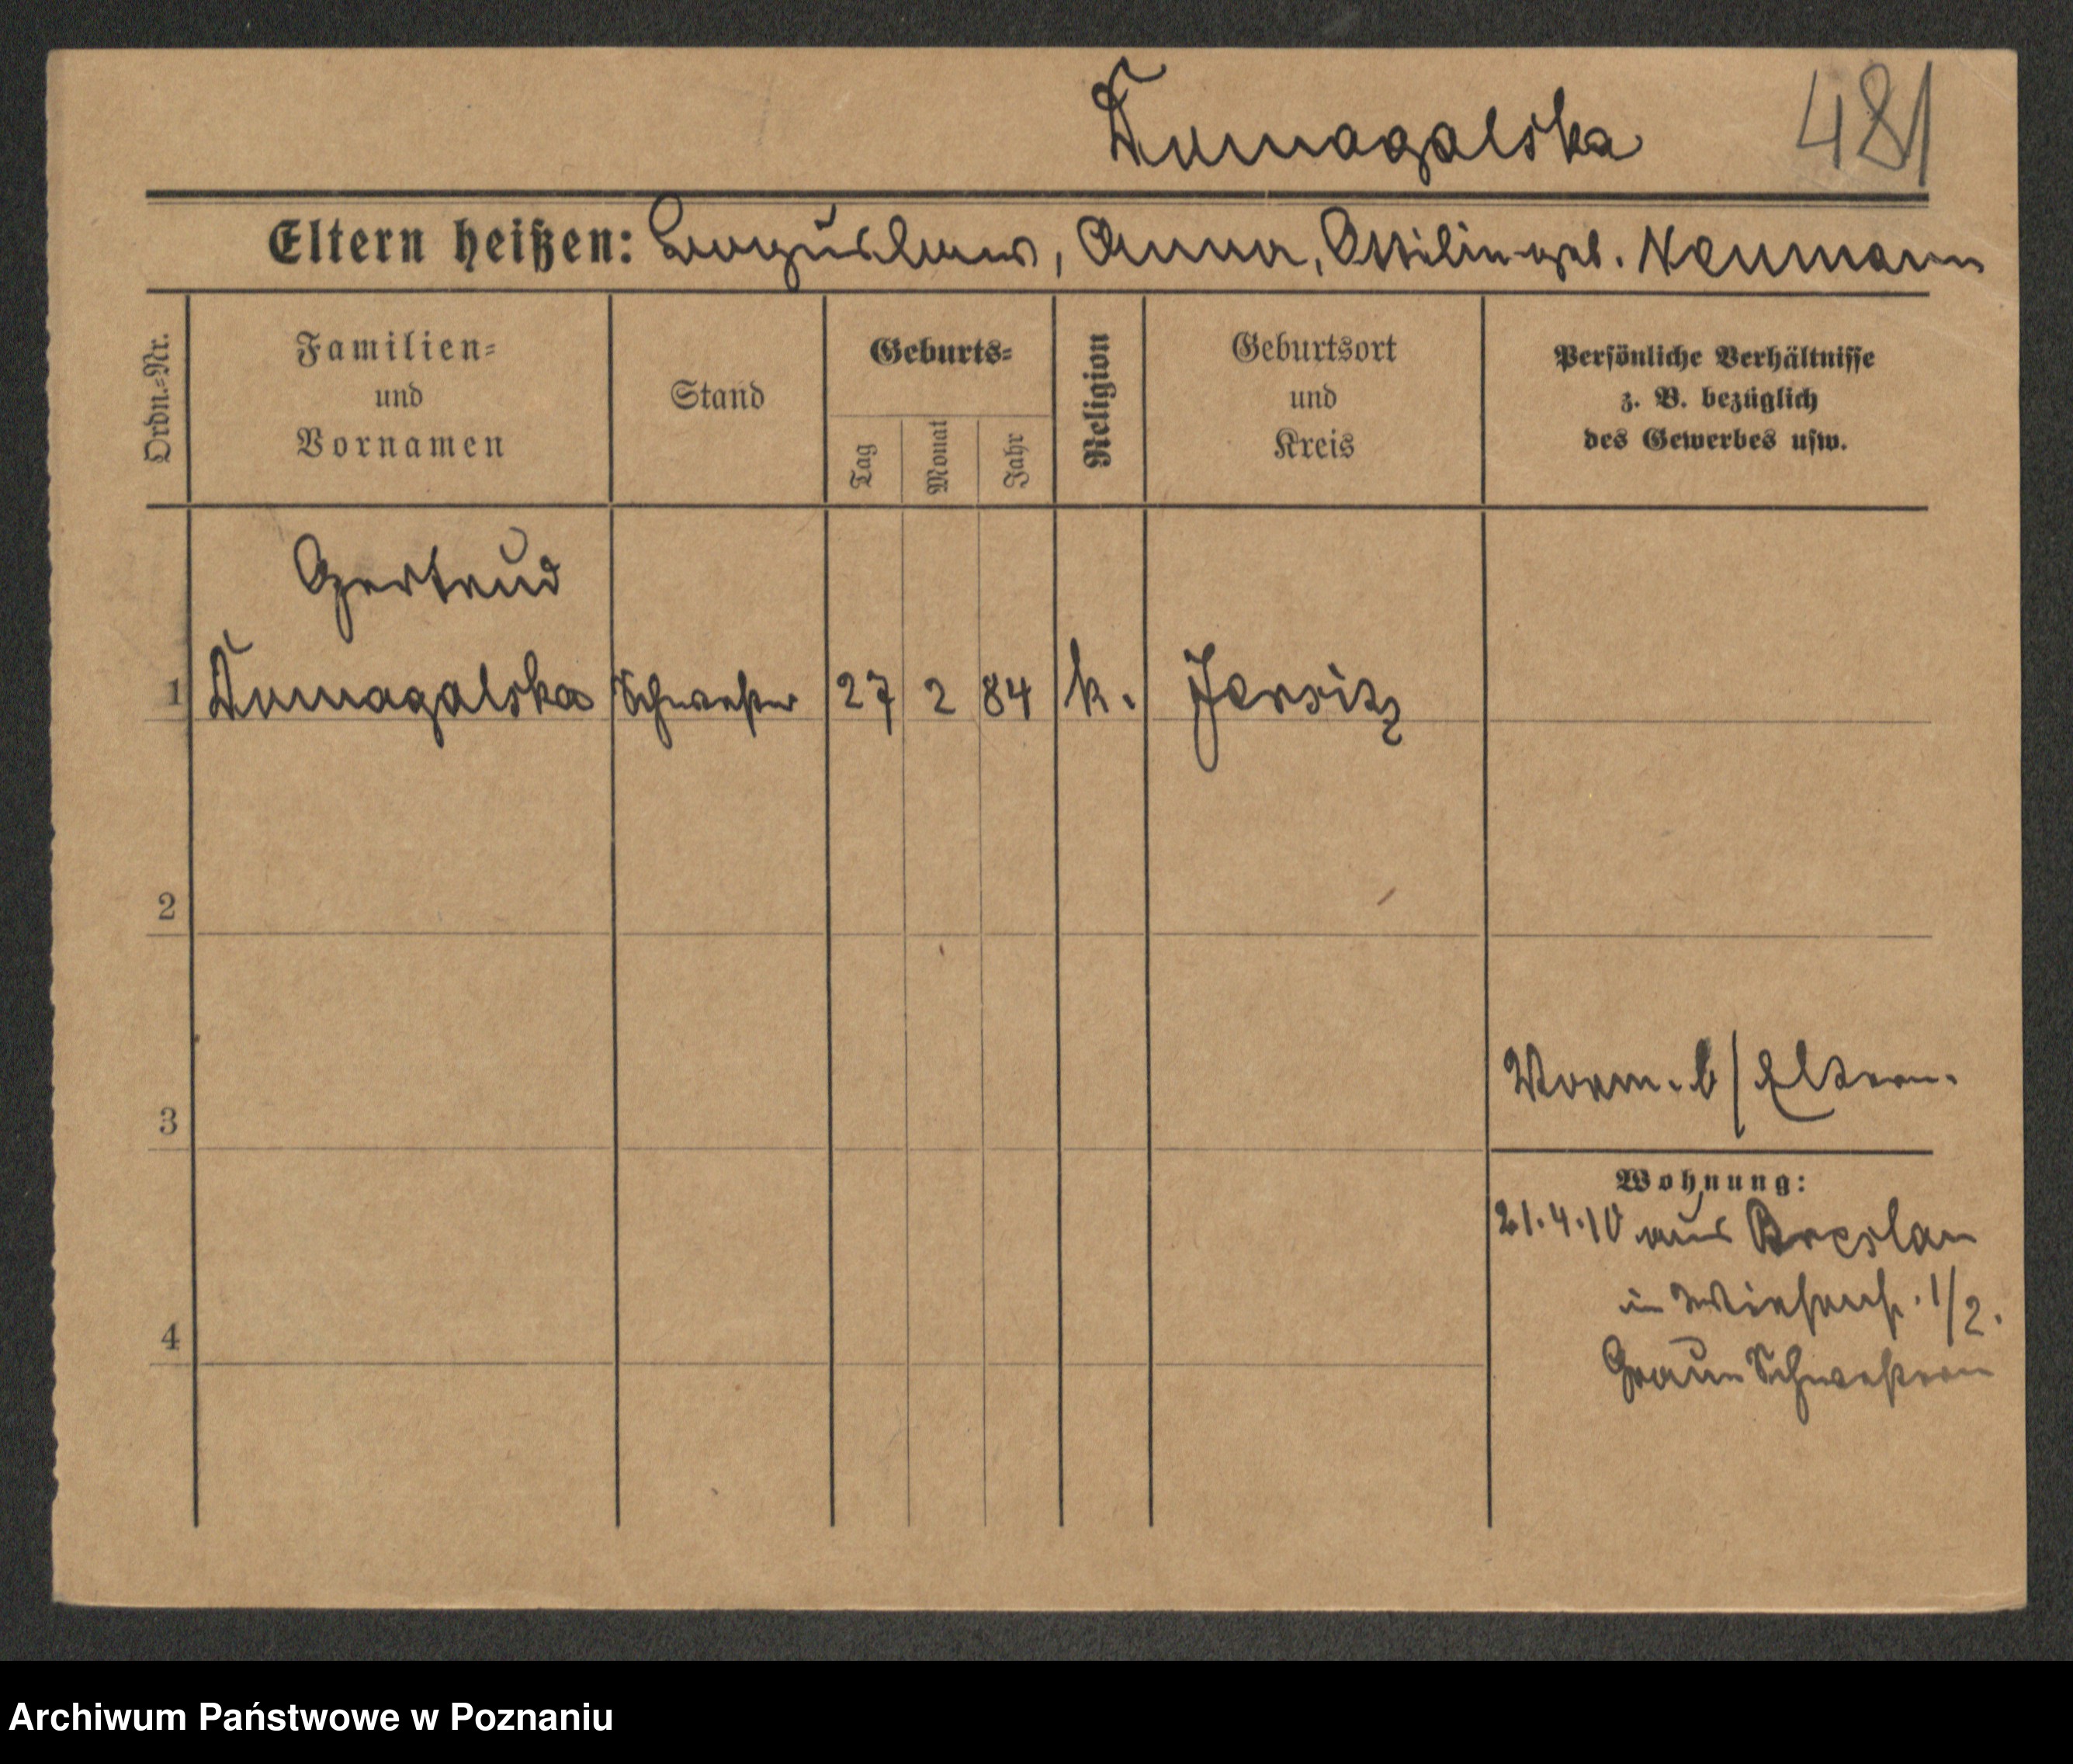 Domagalska 481
Eltern heißen: Boguslaus, Anna, Ottilie geb. Neumann
Ordn.=Nr.
Familien=
und
Vornamen
Stand
Geburts=
Tag
Monat
Jahr
Religion
Geburtsort
und
Kreis
Persönliche Verhältnisse
z. B. bezüglich
des Gewerbes usw.
Gertrud
1 Domagalska Schwester 27 2 84 k. Jersitz
2
3
Vorm. b/ Eltern.
Wohnung:
21.4.10 aus Breslau
in 1/2.
4
Graue Schwestern
Archiwum Państwowe w Poznaniu